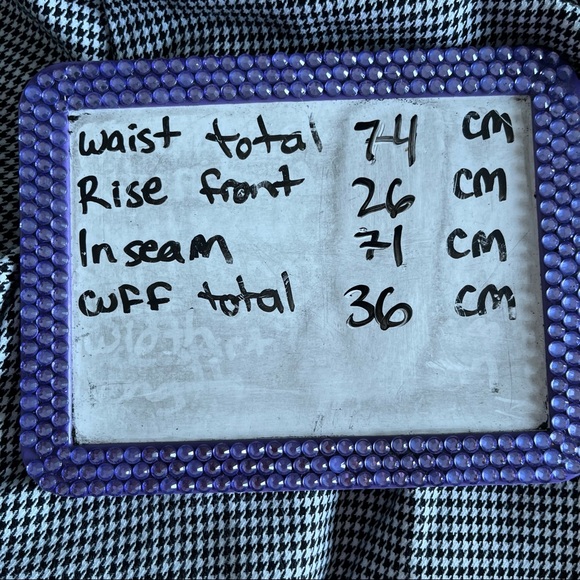 waist total 74 cm
Rise front 26 cm
Inseam 71 cm
cuff total 36 cm
width